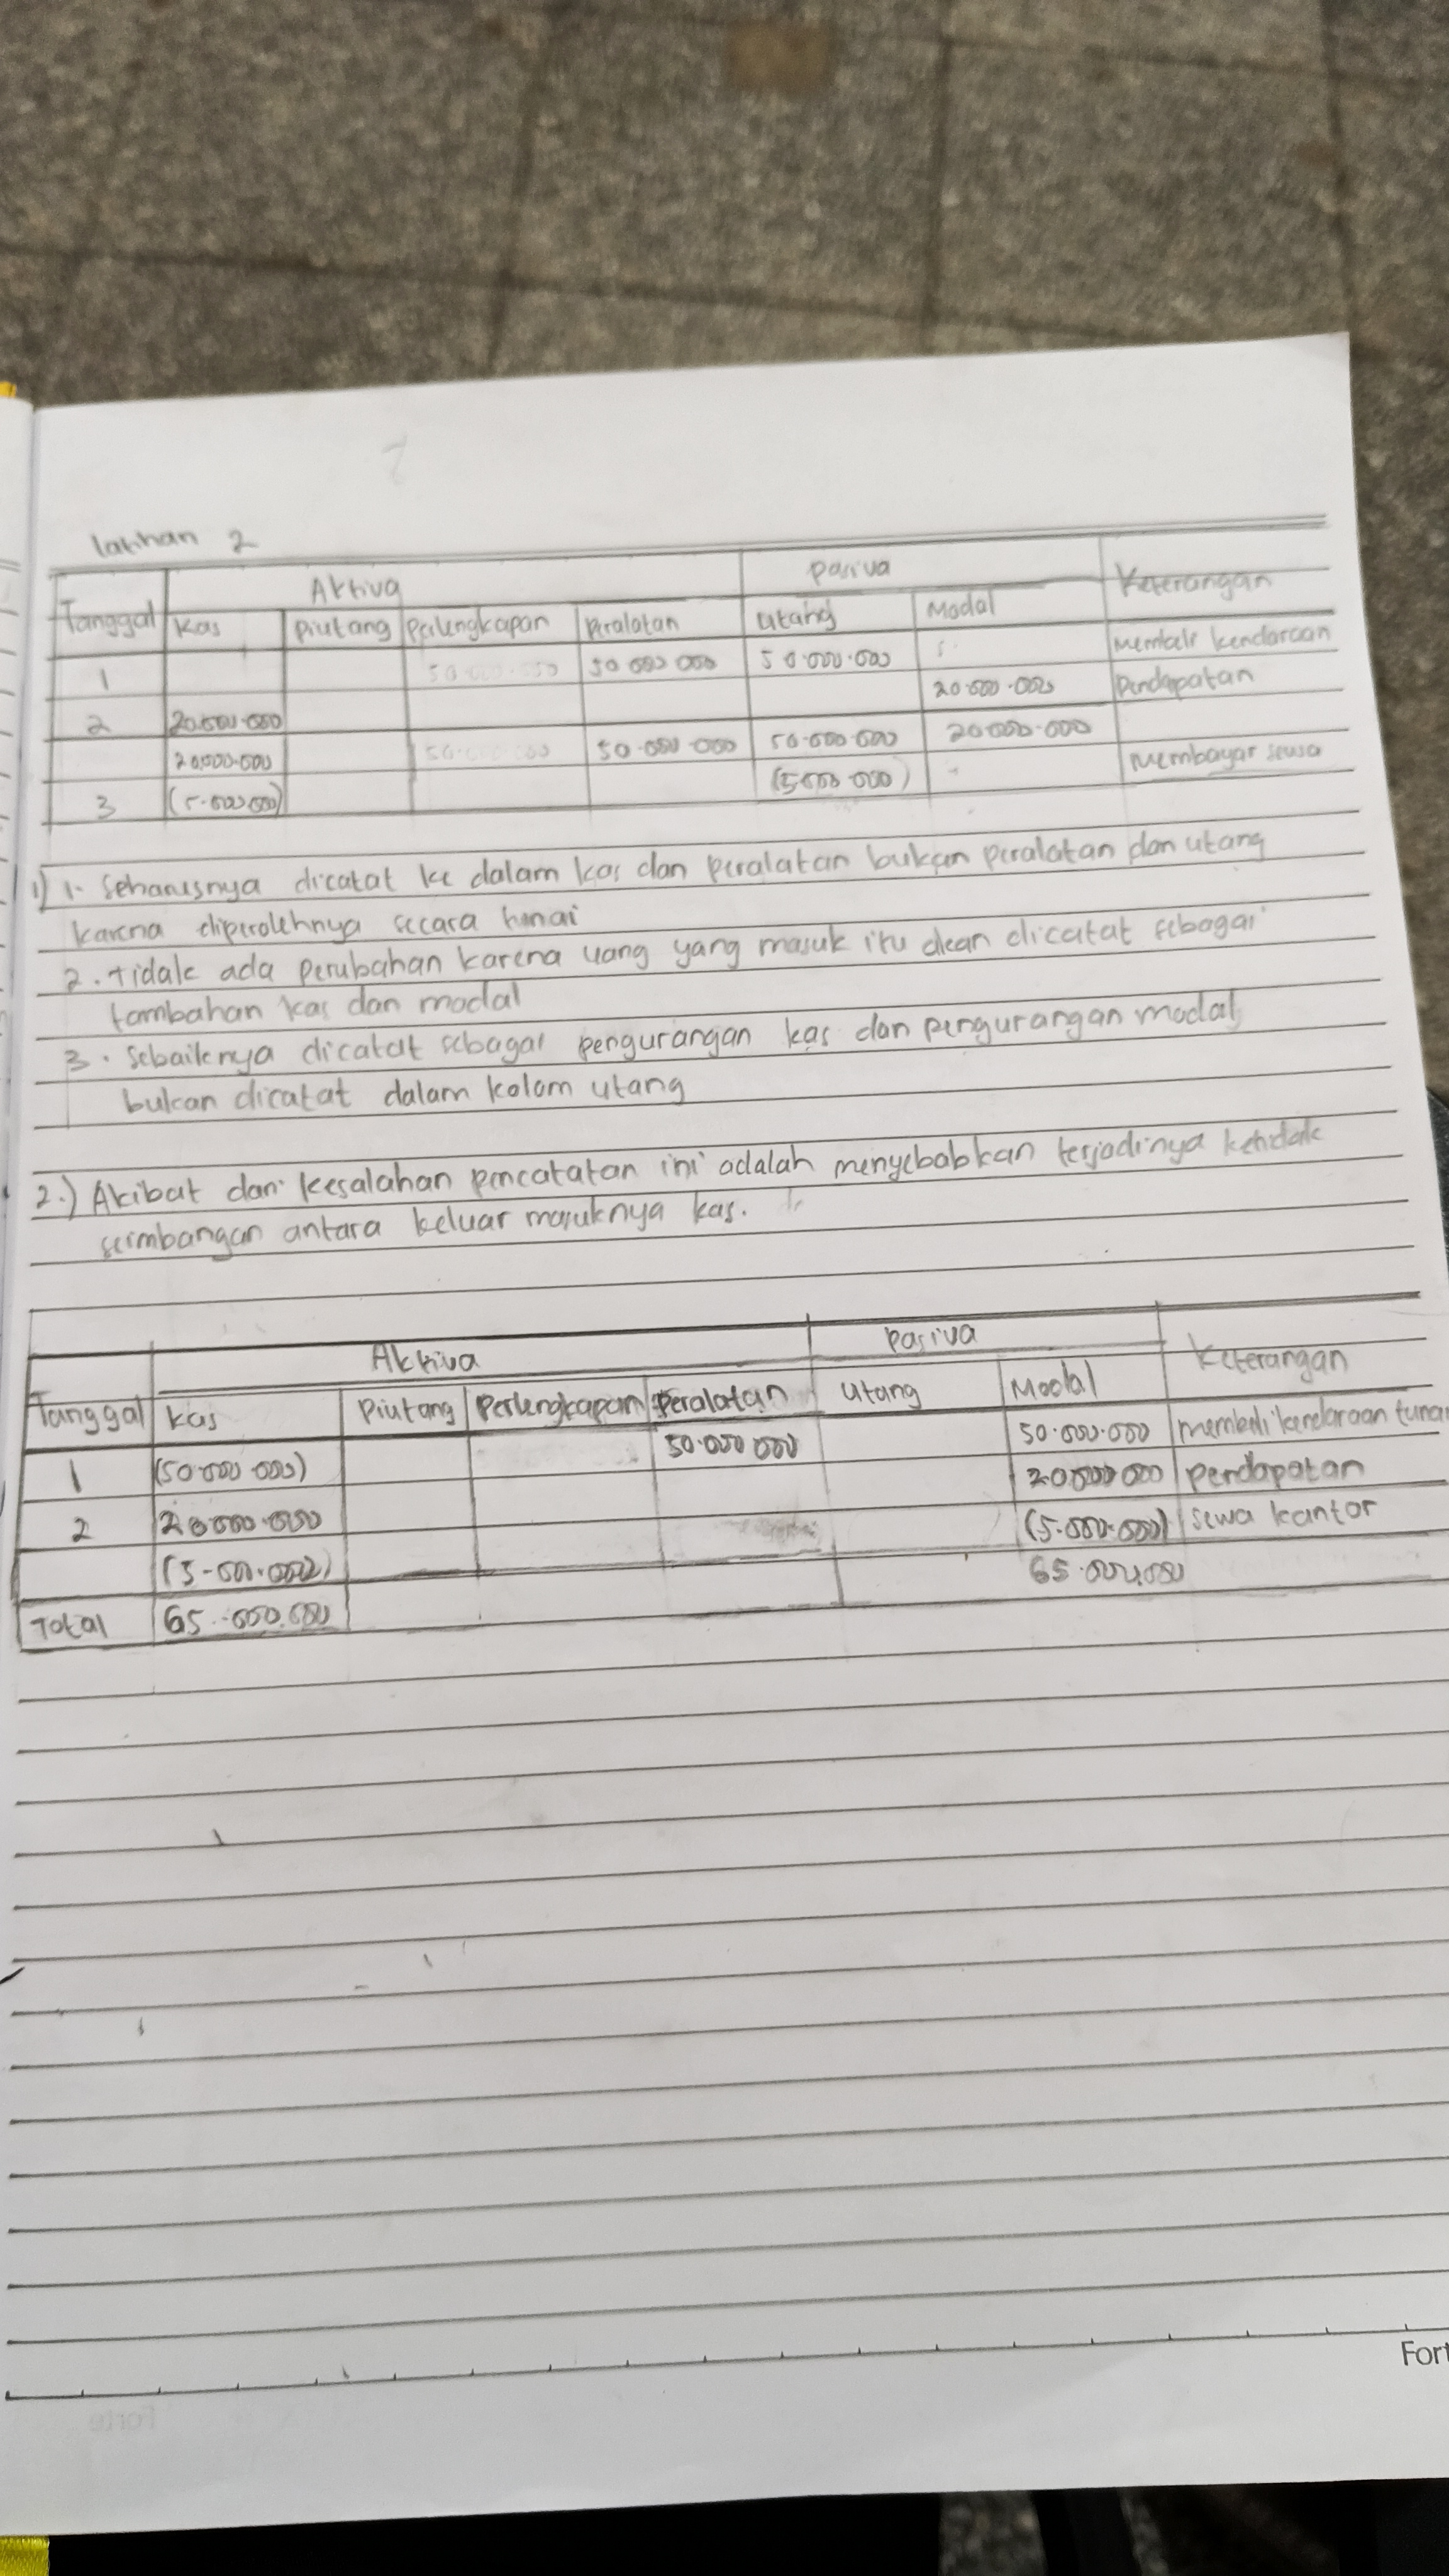 Latihan 2
Aktiva Pasiva Keterangan
Tanggal Kas Piutang Perlengkapan Peralatan Utang Modal
1 50.000.000 50.000.000 50.000.000 Membeli kendaraan
2 20.000.000 20.000.000 Pendapatan
20.000.000 50.000.000 50.000.000 50.000.000 20.000.000
3 (5.000.000) (5.000.000) Membayar sewa
1) 1. Seharusnya dicatat ke dalam kas dan peralatan bukan peralatan dan utang
karena diperolehnya secara tunai
2. tidak ada perubahan karena uang yang masuk itu dicatat sebagai
tambahan kas dan modal
3. Sebaiknya dicatat sebagai pengurangan kas dan pengurangan modal
bukan dicatat dalam kolom utang
2.) Akibat dari kesalahan pencatatan ini adalah menyebabkan terjadinya ketidak
seimbangan antara keluar masuknya kas.
Aktiva Pasiva Keterangan
Tanggal Kas Piutang Perlengkapan Peralatan Utang Modal
1 (50.000.000) 50.000.000 50.000.000 membeli kendaraan tunai
2 20.000.000 20.000.000 pendapatan
(5.000.000) (5.000.000) sewa kantor
Total 65.000.000 65.000.000
Fort